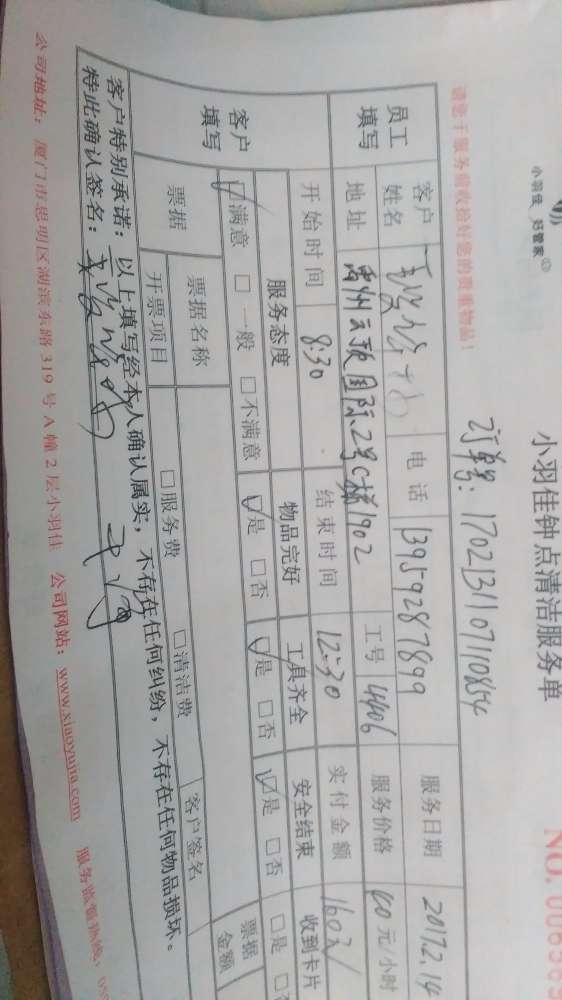 小羽佳 好管家
小羽佳钟点清洁服务单
NO.
订单号：1702131107110854
请您于服务前收拾好您的贵重物品！
员工填写 客户姓名 电话 13959287899 服务日期 2017.2.14
地址 禹州云顶国际2号C梯1902 工号 4406 服务价格 40元/小时
开始时间 8:30 结束时间 12:30 实付金额 160元
客户填写 服务态度 物品完好 工具齐全 安全结束 收到卡片
☑满意 □一般 □不满意 ☑是 □否 ☑是 □否 ☑是 □否 □是 □否
票据 票据名称 客户签名 票据金额
开票项目 □服务费 □清洁费
客户特别承诺：以上填写经本人确认属实，不存在任何纠纷，不存在任何物品损坏。
特此确认签名：
公司地址：厦门市思明区湖滨东路319号A幢2层小羽佳 公司网站：www.xiaoyujia.com 服务监督热线：